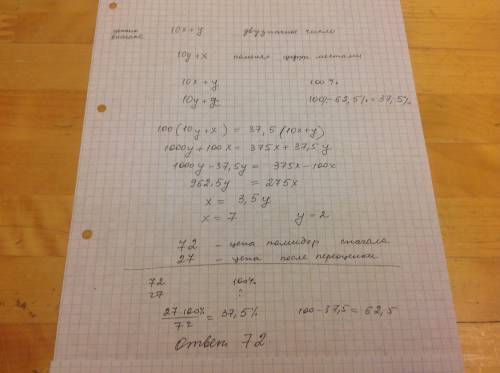 10x+y двузначное число
вначале
10y+x поменял цифры местами
10x+y 100%
10y+x 100%-62,5%=37,5%
100(10y+x) = 37,5(10x+y)
1000y+100x = 375x+37,5y
1000y-37,5y = 375x-100x
962,5y = 275x
x = 3,5y
x = 7 y = 2
72 - цена помидор сначала
27 - цена после переоценки
72 100%
27 ?
27·100% / 72 = 37,5% 100-37,5=62,5
Ответ 72